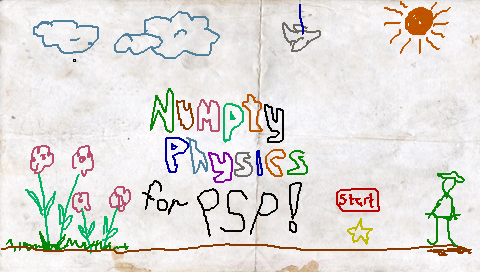 Numpty
Physics
for PSP!
Start